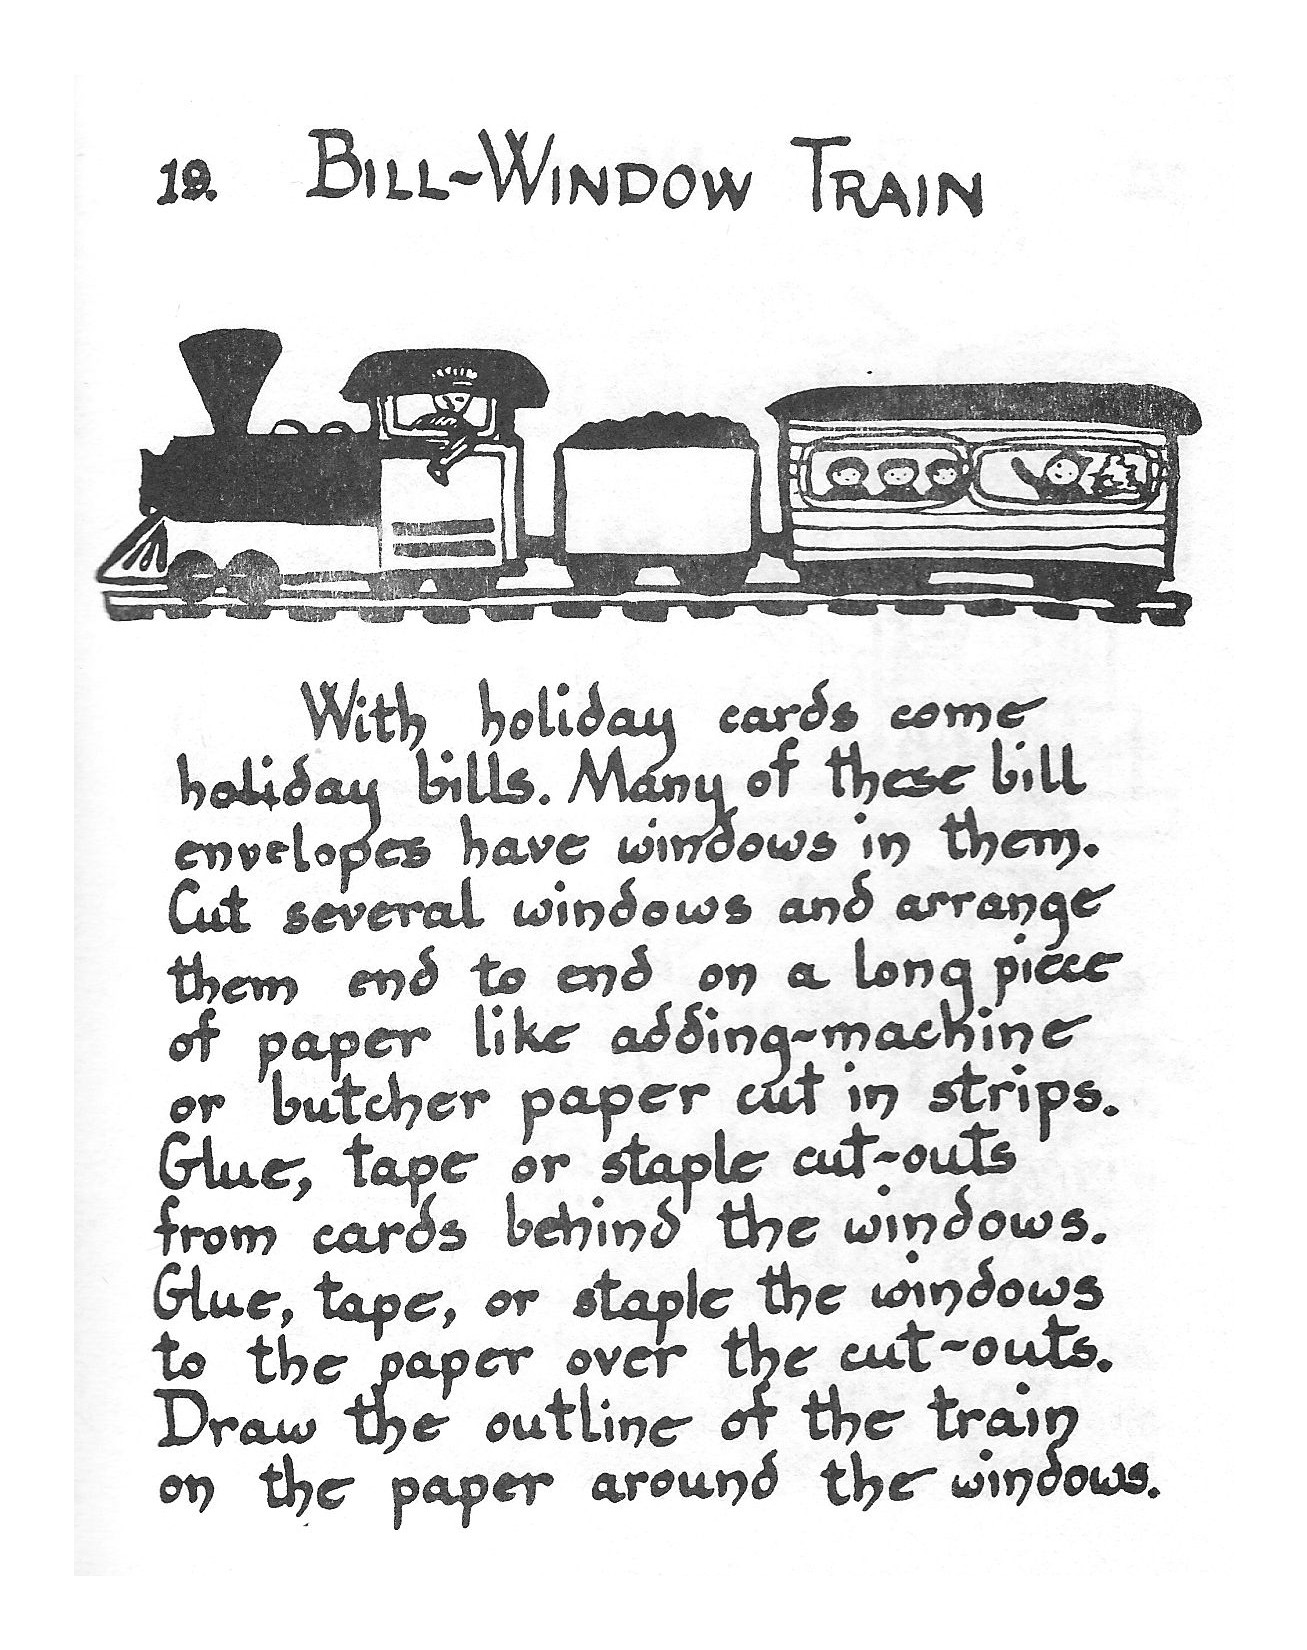 19. BILL-WINDOW TRAIN
With holiday cards come
holiday bills. Many of these bill
envelopes have windows in them.
Cut several windows and arrange
them end to end on a long piece
of paper like adding-machine
or butcher paper cut in strips.
Glue, tape or staple cut-outs
from cards behind the windows.
Glue, tape, or staple the windows
to the paper over the cut-outs.
Draw the outline of the train
on the paper around the windows.